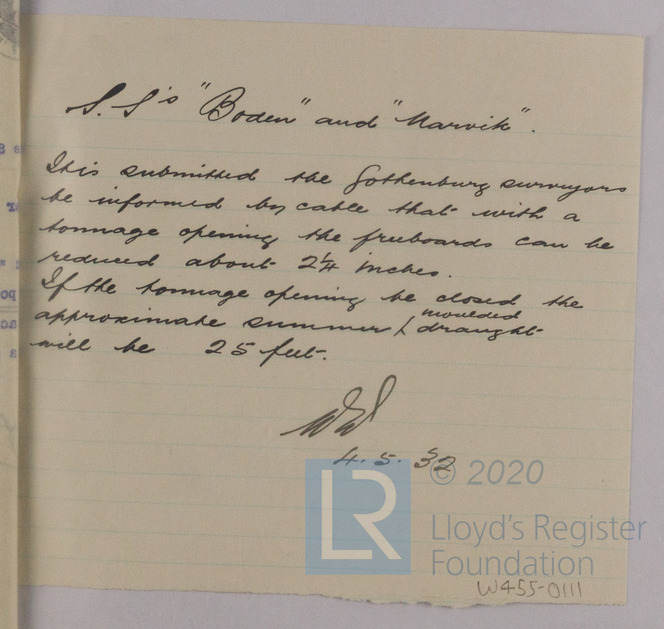 S.S's "Boden" and "Narvik".
It is submitted the Gothenburg surveyors
be informed by cable that with a
tonnage opening the freeboards can be
reduced about 2¼ inches.
If the tonnage opening be closed the
approximate summer moulded draught
will be 25 feet.
4.5.32
© 2020
LR
Lloyd's Register
Foundation
W455-0111